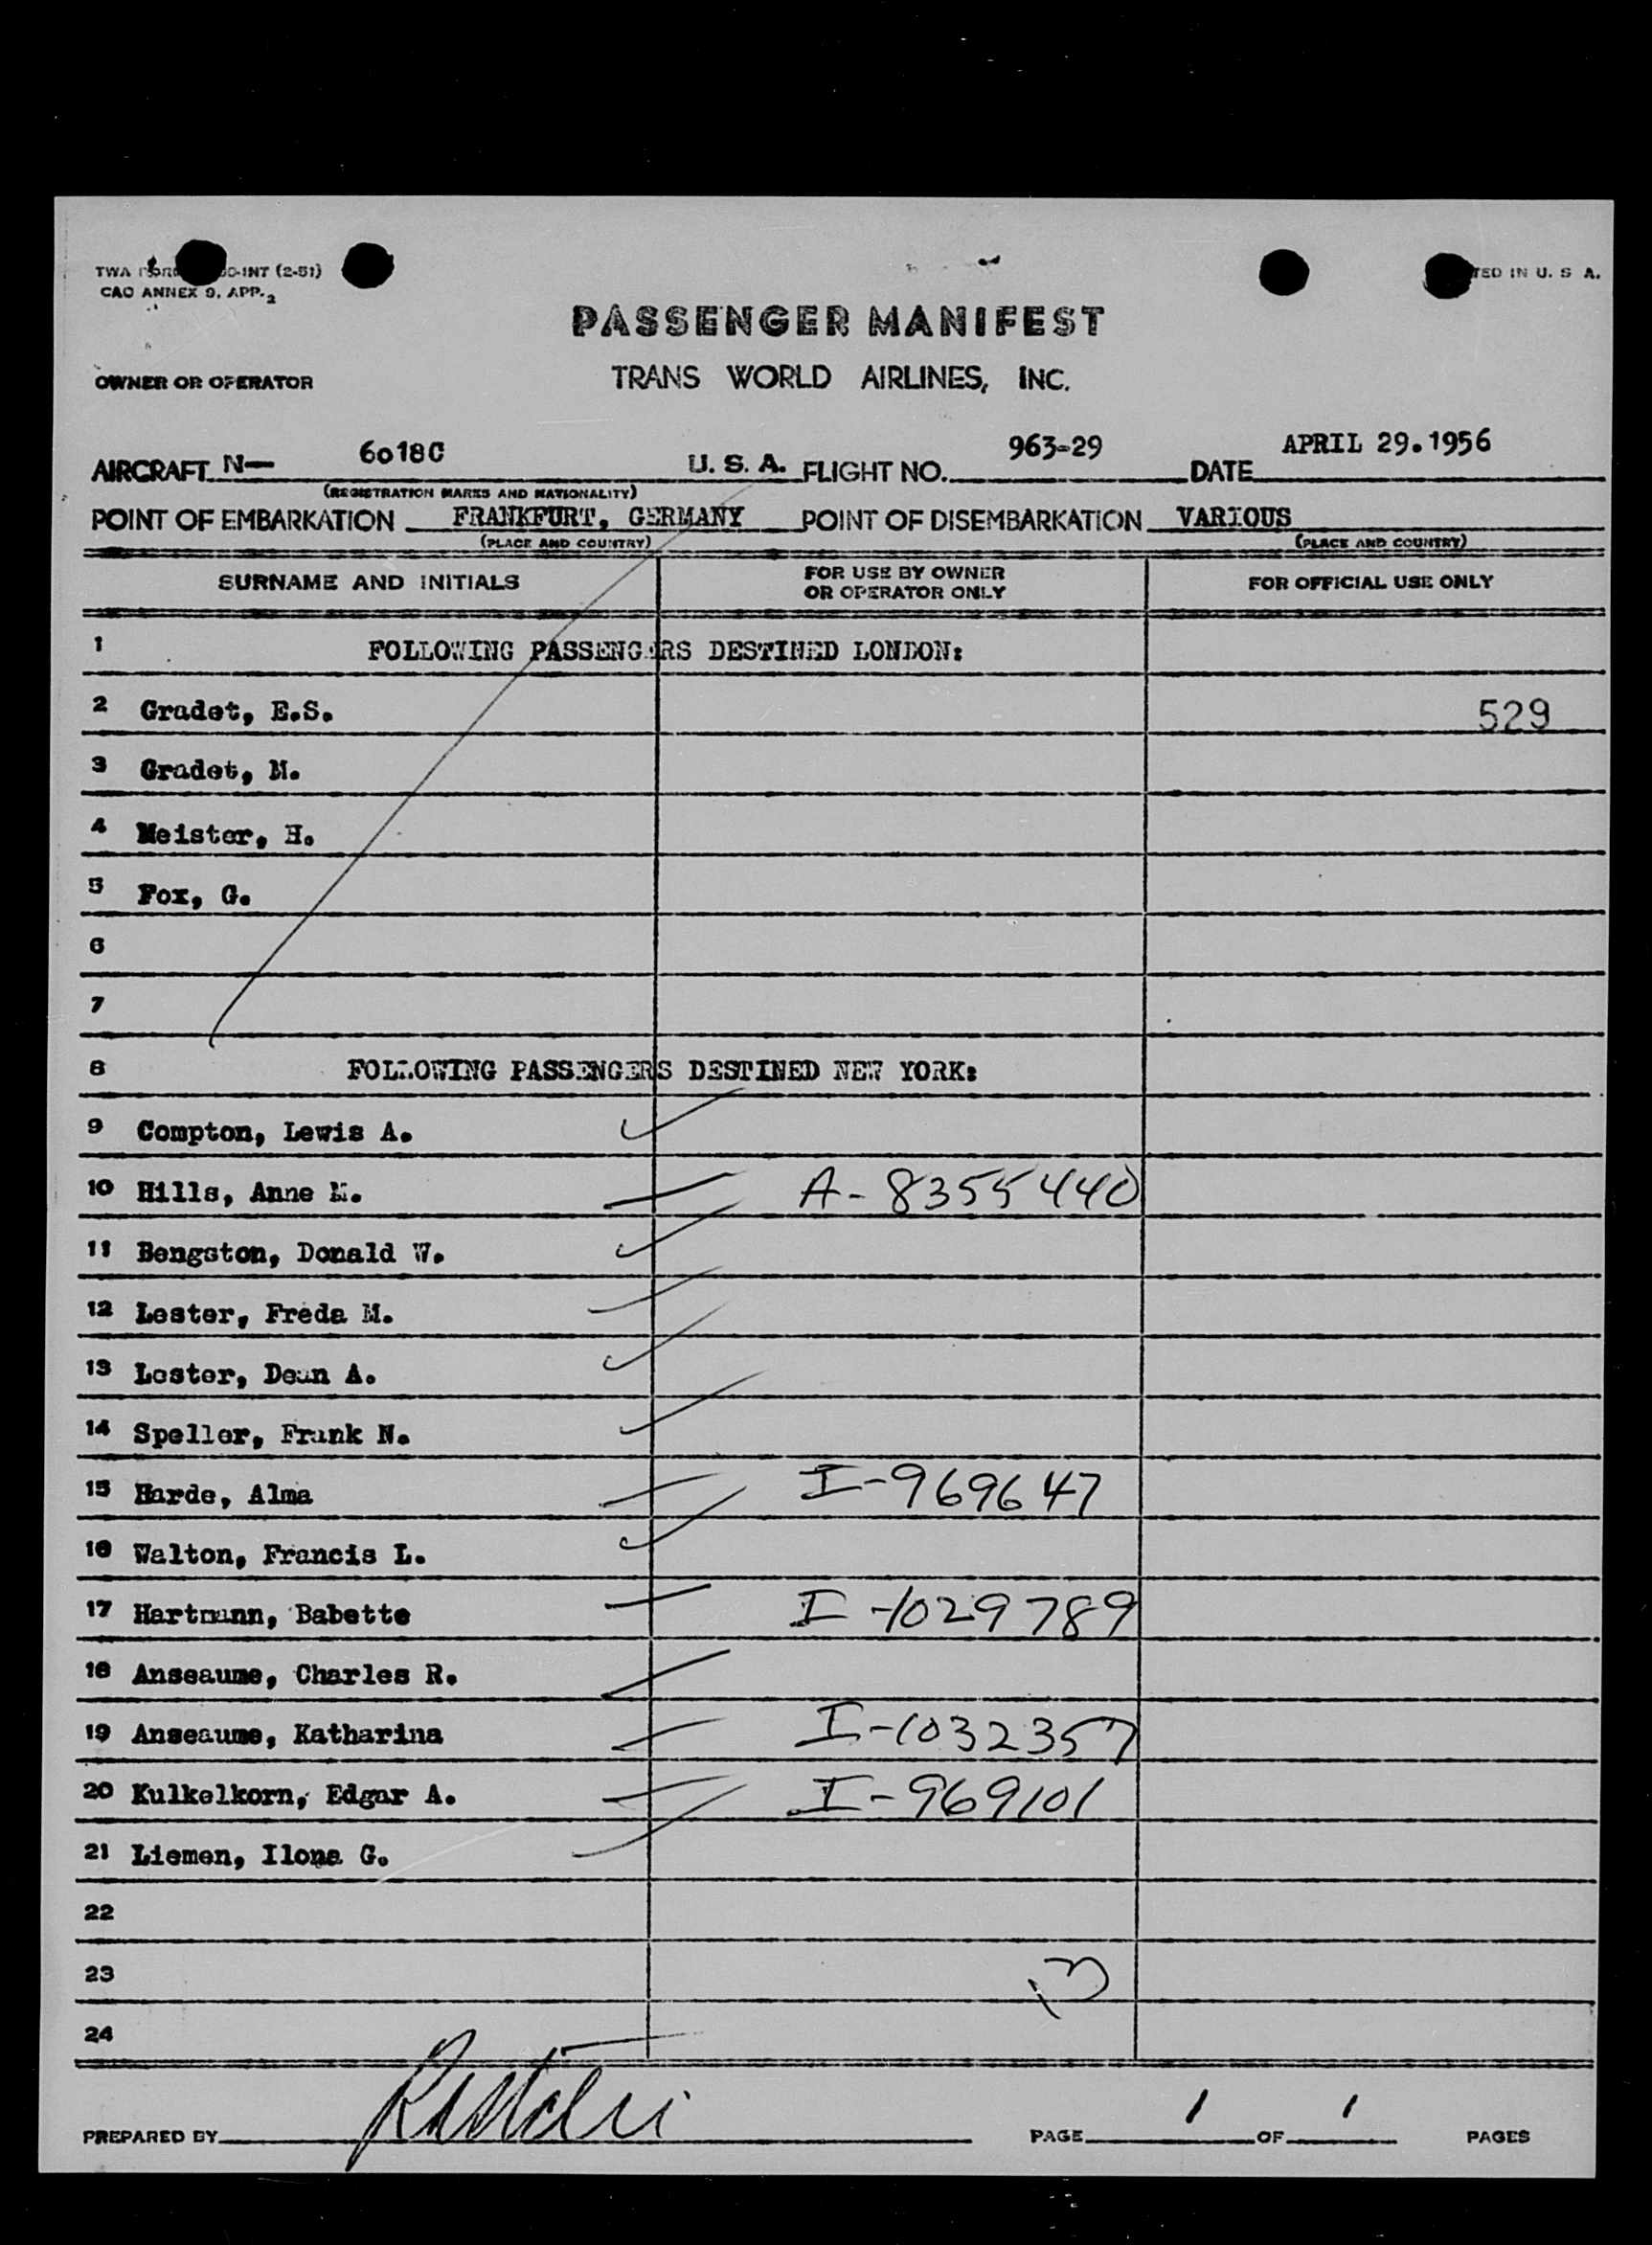 TWA FORM INT (2-51)
CAO ANNEX 9, APP. 2
TED IN U. S A.
PASSENGER MANIFEST
OWNER OR OPERATOR TRANS WORLD AIRLINES, INC.
AIRCRAFT N— 6018C U. S. A. FLIGHT NO. 963-29 DATE APRIL 29.1956
(REGISTRATION MARKS AND NATIONALITY)
POINT OF EMBARKATION FRANKFURT, GERMANY POINT OF DISEMBARKATION VARIOUS
(PLACE AND COUNTRY) (PLACE AND COUNTRY)
SURNAME AND INITIALS FOR USE BY OWNER OR OPERATOR ONLY FOR OFFICIAL USE ONLY
1 FOLLOWING PASSENGERS DESTINED LONDON:
2 Gradet, E.S. 529
3 Gradet, M.
4 Meister, H.
5 Fox, G.
6
7
8 FOLLOWING PASSENGERS DESTINED NEW YORK:
9 Compton, Lewis A.
10 Hills, Anne M. A-8355440
11 Bengston, Donald W.
12 Lester, Freda M.
13 Lester, Dean A.
14 Speller, Frank N.
15 Harde, Alma I-969647
16 Walton, Francis L.
17 Hartmann, Babette I-1029789
18 Anseaume, Charles R.
19 Anseaume, Katharina I-1032357
20 Kulkelkorn, Edgar A. I-969101
21 Liemen, Ilona G.
22
23 13
24
PREPARED BY PAGE 1 OF 1 PAGES